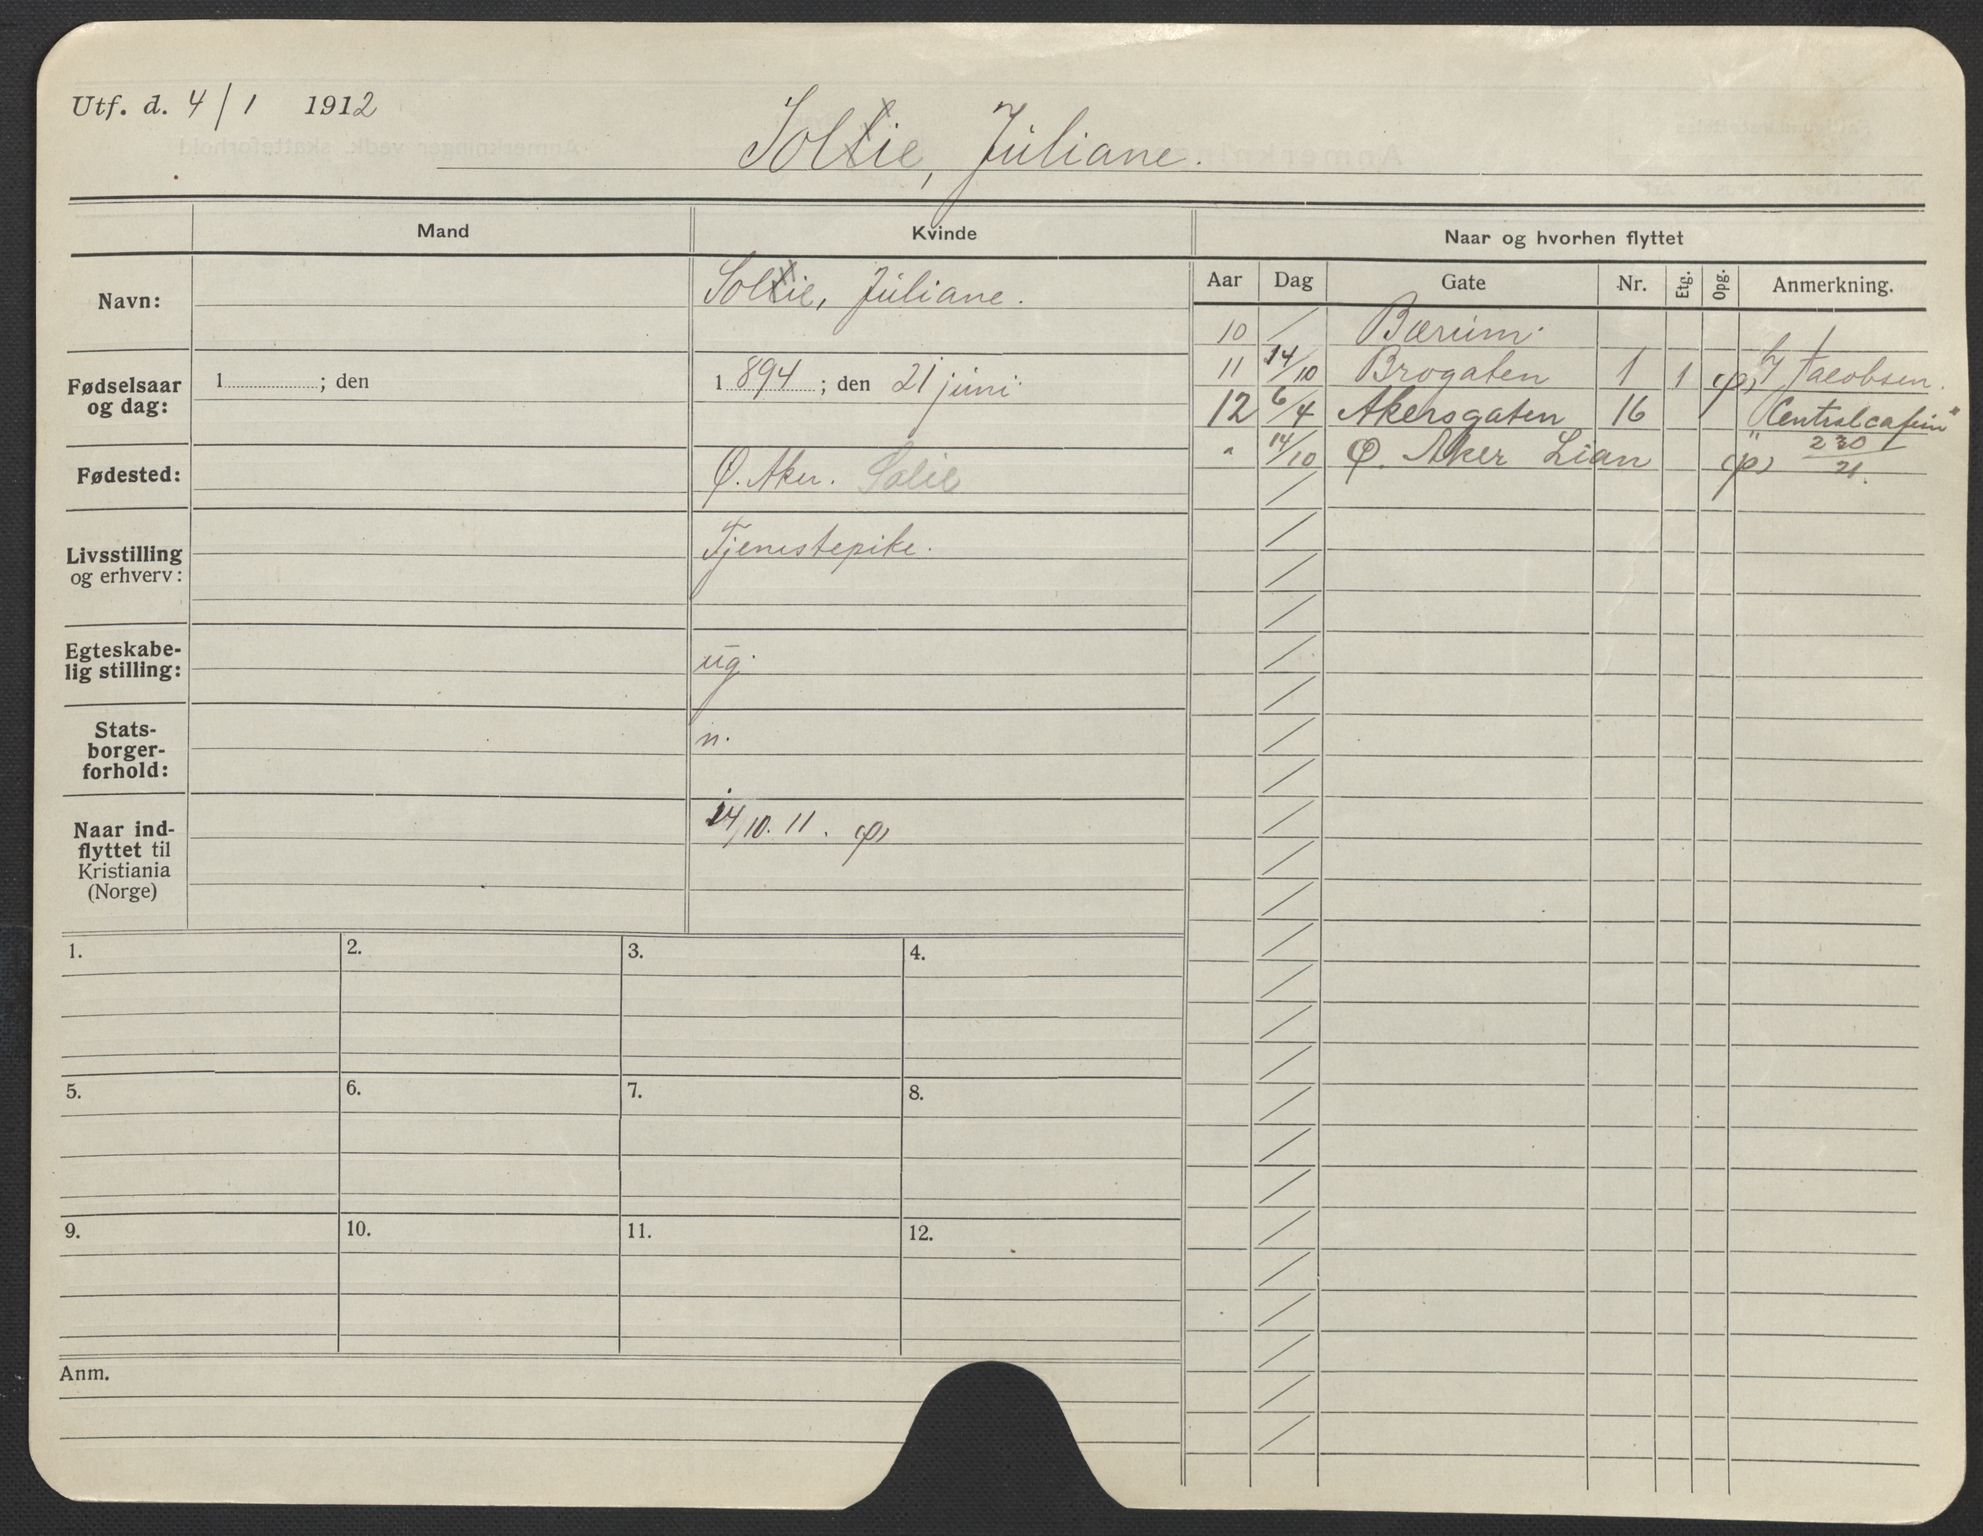 Utf. d. 4/1 1912
Sollie, Juliane.
Mand
Kvinde
Naar og hvorhen flyttet
Aar Dag Gate Nr. Etg. Opg. Anmerkning.
Navn:
Sollie, Juliane.
Fødselsaar
og dag:
1 ; den
1 894 ; den 21 juni
Fødested:
Ø. Aker. Solie
Livsstilling
og erhverv:
Tjenestepike.
Egteskabe-
lig stilling:
ug.
Stats-
borger-
forhold:
n.
Naar ind-
flyttet til
Kristiania
(Norge)
14/10. 11. (p)
10 / Bærum.
11 14/10 Brogaten 1 1 (p) Jacobsen.
12 6/4 Akersgaten 16 "Centralcafeen"
" 14/10 Ø. Aker Lian (p) 230/21.
1. 2. 3. 4.
5. 6. 7. 8.
9. 10. 11. 12.
Anm.